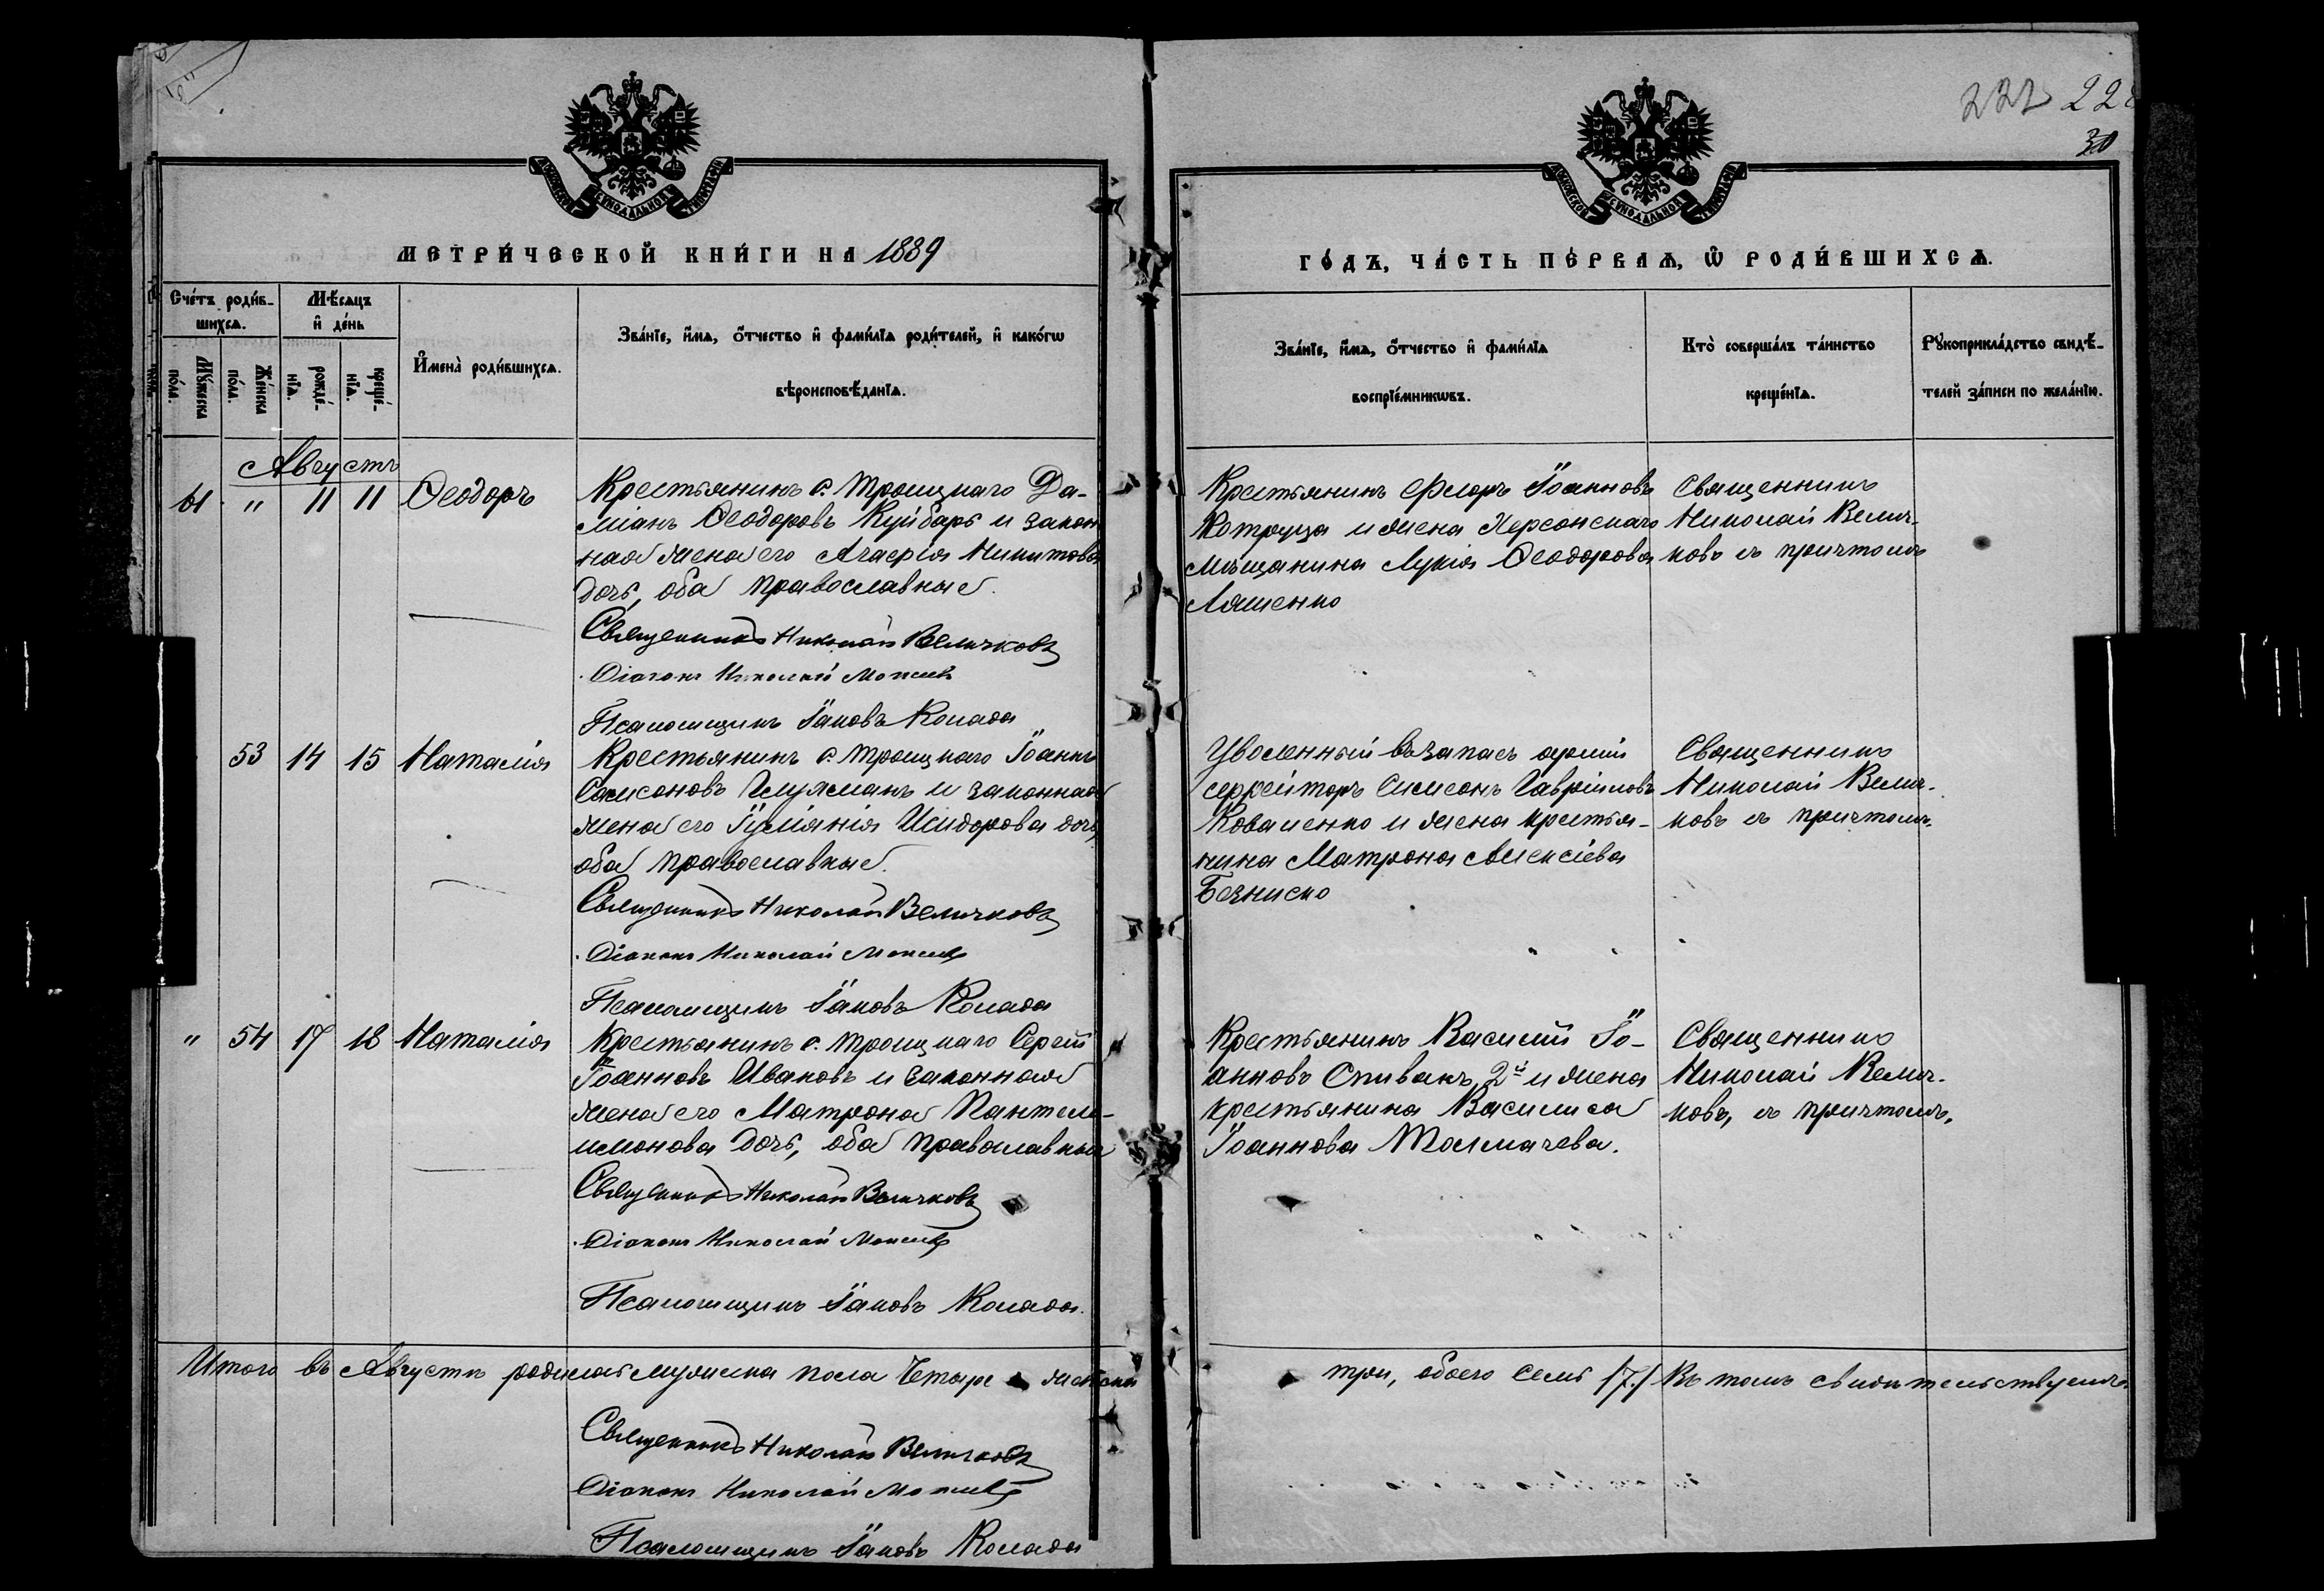 222 22
30
МЕТРИ́ЧЕСКОЙ КНИ́ГИ НА 1889
ГО́ДЪ, ЧА́СТЬ ПЕ́РВАѦ, Ѡ҆ РОДИ́ВШИХСѦ.
Сче́тъ роди́в-
шихсѧ.
Мѣ́сѧцъ
и҆ де́нь
Мꙋ́жеска
по́ла.
Же́нска
по́ла.
рожде́-
нїѧ.
креще́-
нїѧ.
И҆мена̀ роди́вшихсѧ.
Зва́нїе, и҆́мѧ, ѻ҆́тчество и҆ фами́лїѧ роди́телей, и҆ како́гѡ
вѣроисповѣ́данїѧ.
Зва́нїе, и҆́мѧ, ѻ҆́тчество и҆ фами́лїѧ
воспрїе́мникѡвъ.
Кто̀ соверша́лъ та́инство
креще́нїѧ.
Рꙋкоприкла́дство свидѣ́-
телей за́писи по жела́нїю.
Августъ
61 " 11 11 Ѳеодоръ
Крестьянинъ с. Троицкаго Да-
міанъ Ѳеодоровъ Куйбарь и закон
ная жена его Агафія Никитова
дочь, оба православные.
Священникъ Николай Величковъ
Діаконъ Николай
Псаломщикъ Іаковъ Колада
Крестьянинъ Флоръ Іоанновъ
Котруца и жена Херсонскаго
мѣщанина Лукія Ѳеодорова
Ляшенко
Священникъ
Николай Велич-
ковъ съ причтомъ
53 14 15 Наталія
Крестьянинъ с. Троицкаго Іоаннъ
Самсоновъ и законная
жена его Іуліанія Исидорова дочь,
оба православные.
Священникъ Николай Величковъ
Діаконъ Николай
Псаломщикъ Іаковъ Колада
Уволенный въ запасъ арміи
ефрейторъ Симеонъ Гавріиловъ
Коваленко и жена крестья-
нина Матрона Алексіева
Священникъ
Николай Велич-
ковъ съ причтомъ.
" 54 17 18 Наталія
Крестьянинъ с. Троицкаго Сергій
Іоанновъ Ивановъ и законная
жена его Матрона Пантеле-
имонова дочь, оба православные
Священникъ Николай Величковъ
Діаконъ Николай
Псаломщикъ Іаковъ Колада.
Крестьянинъ Василій Іо-
анновъ Спивакъ 2й и жена
крестьянина Василиса
Іоаннова Толмачева.
Священникъ
Николай Велич-
ковъ, съ причтомъ.
Итого въ Августѣ родилось мужска пола четыре женска
три, обоего семь /7./ Въ томъ свидѣтельствуемъ
Священникъ Николай Величковъ
Діаконъ Николай
Псаломщикъ Іаковъ Колада